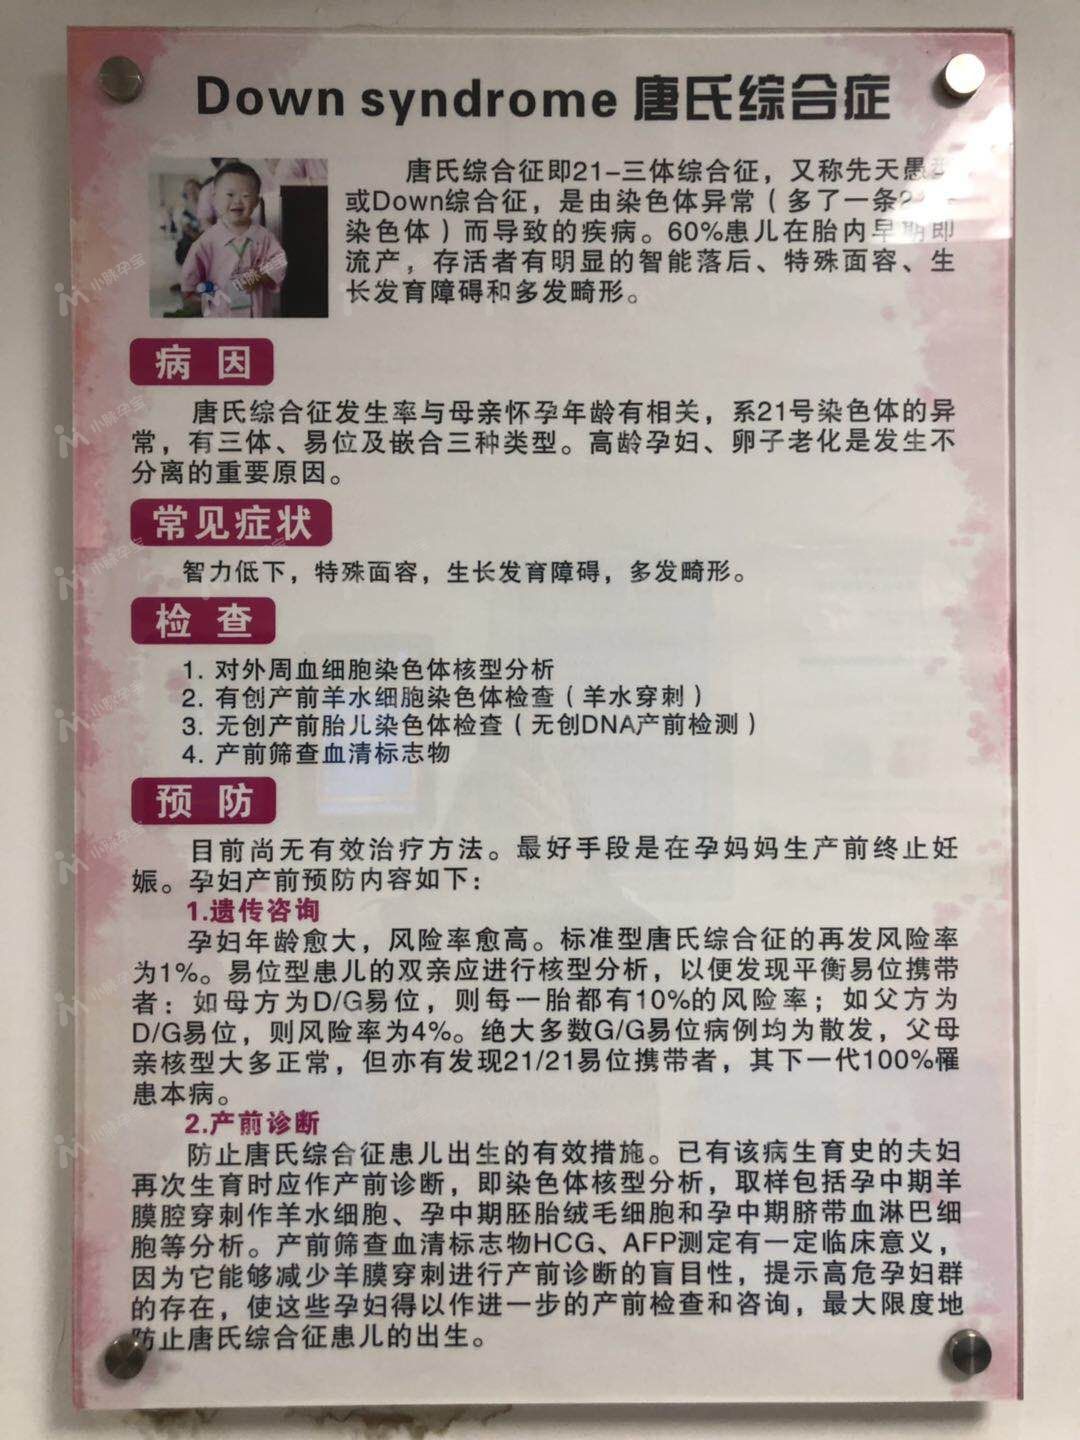 Down syndrome 唐氏综合症
唐氏综合征即21-三体综合征，又称先天愚
或Down综合征，是由染色体异常（多了一条
染色体）而导致的疾病。60%患儿在胎内早期即
流产，存活者有明显的智能落后、特殊面容、生
长发育障碍和多发畸形。
病 因
唐氏综合征发生率与母亲怀孕年龄有相关，系21号染色体的异
常，有三体、易位及嵌合三种类型。高龄孕妇、卵子老化是发生不
分离的重要原因。
常见症状
智力低下，特殊面容，生长发育障碍，多发畸形。
检 查
1. 对外周血细胞染色体核型分析
2. 有创产前羊水细胞染色体检查（羊水穿刺）
3. 无创产前胎儿染色体检查（无创DNA产前检测）
4. 产前筛查血清标志物
预 防
目前尚无有效治疗方法。最好手段是在孕妈妈生产前终止妊
娠。孕妇产前预防内容如下：
1.遗传咨询
孕妇年龄愈大，风险率愈高。标准型唐氏综合征的再发风险率
为1%。易位型患儿的双亲应进行核型分析，以便发现平衡易位携带
者：如母方为D/G易位，则每一胎都有10%的风险率；如父方为
D/G易位，则风险率为4%。绝大多数G/G易位病例均为散发，父母
亲核型大多正常，但亦有发现21/21易位携带者，其下一代100%罹
患本病。
2.产前诊断
防止唐氏综合征患儿出生的有效措施。已有该病生育史的夫妇
再次生育时应作产前诊断，即染色体核型分析，取样包括孕中期羊
膜腔穿刺作羊水细胞、孕中期胚胎绒毛细胞和孕中期脐带血淋巴细
胞等分析。产前筛查血清标志物HCG、AFP测定有一定临床意义，
因为它能够减少羊膜穿刺进行产前诊断的盲目性，提示高危孕妇群
的存在，使这些孕妇得以作进一步的产前检查和咨询，最大限度地
防止唐氏综合征患儿的出生。
小脉孕宝
小脉孕宝
小脉孕宝
小脉孕宝
小脉孕宝
小脉孕宝
小脉孕宝
小脉孕宝